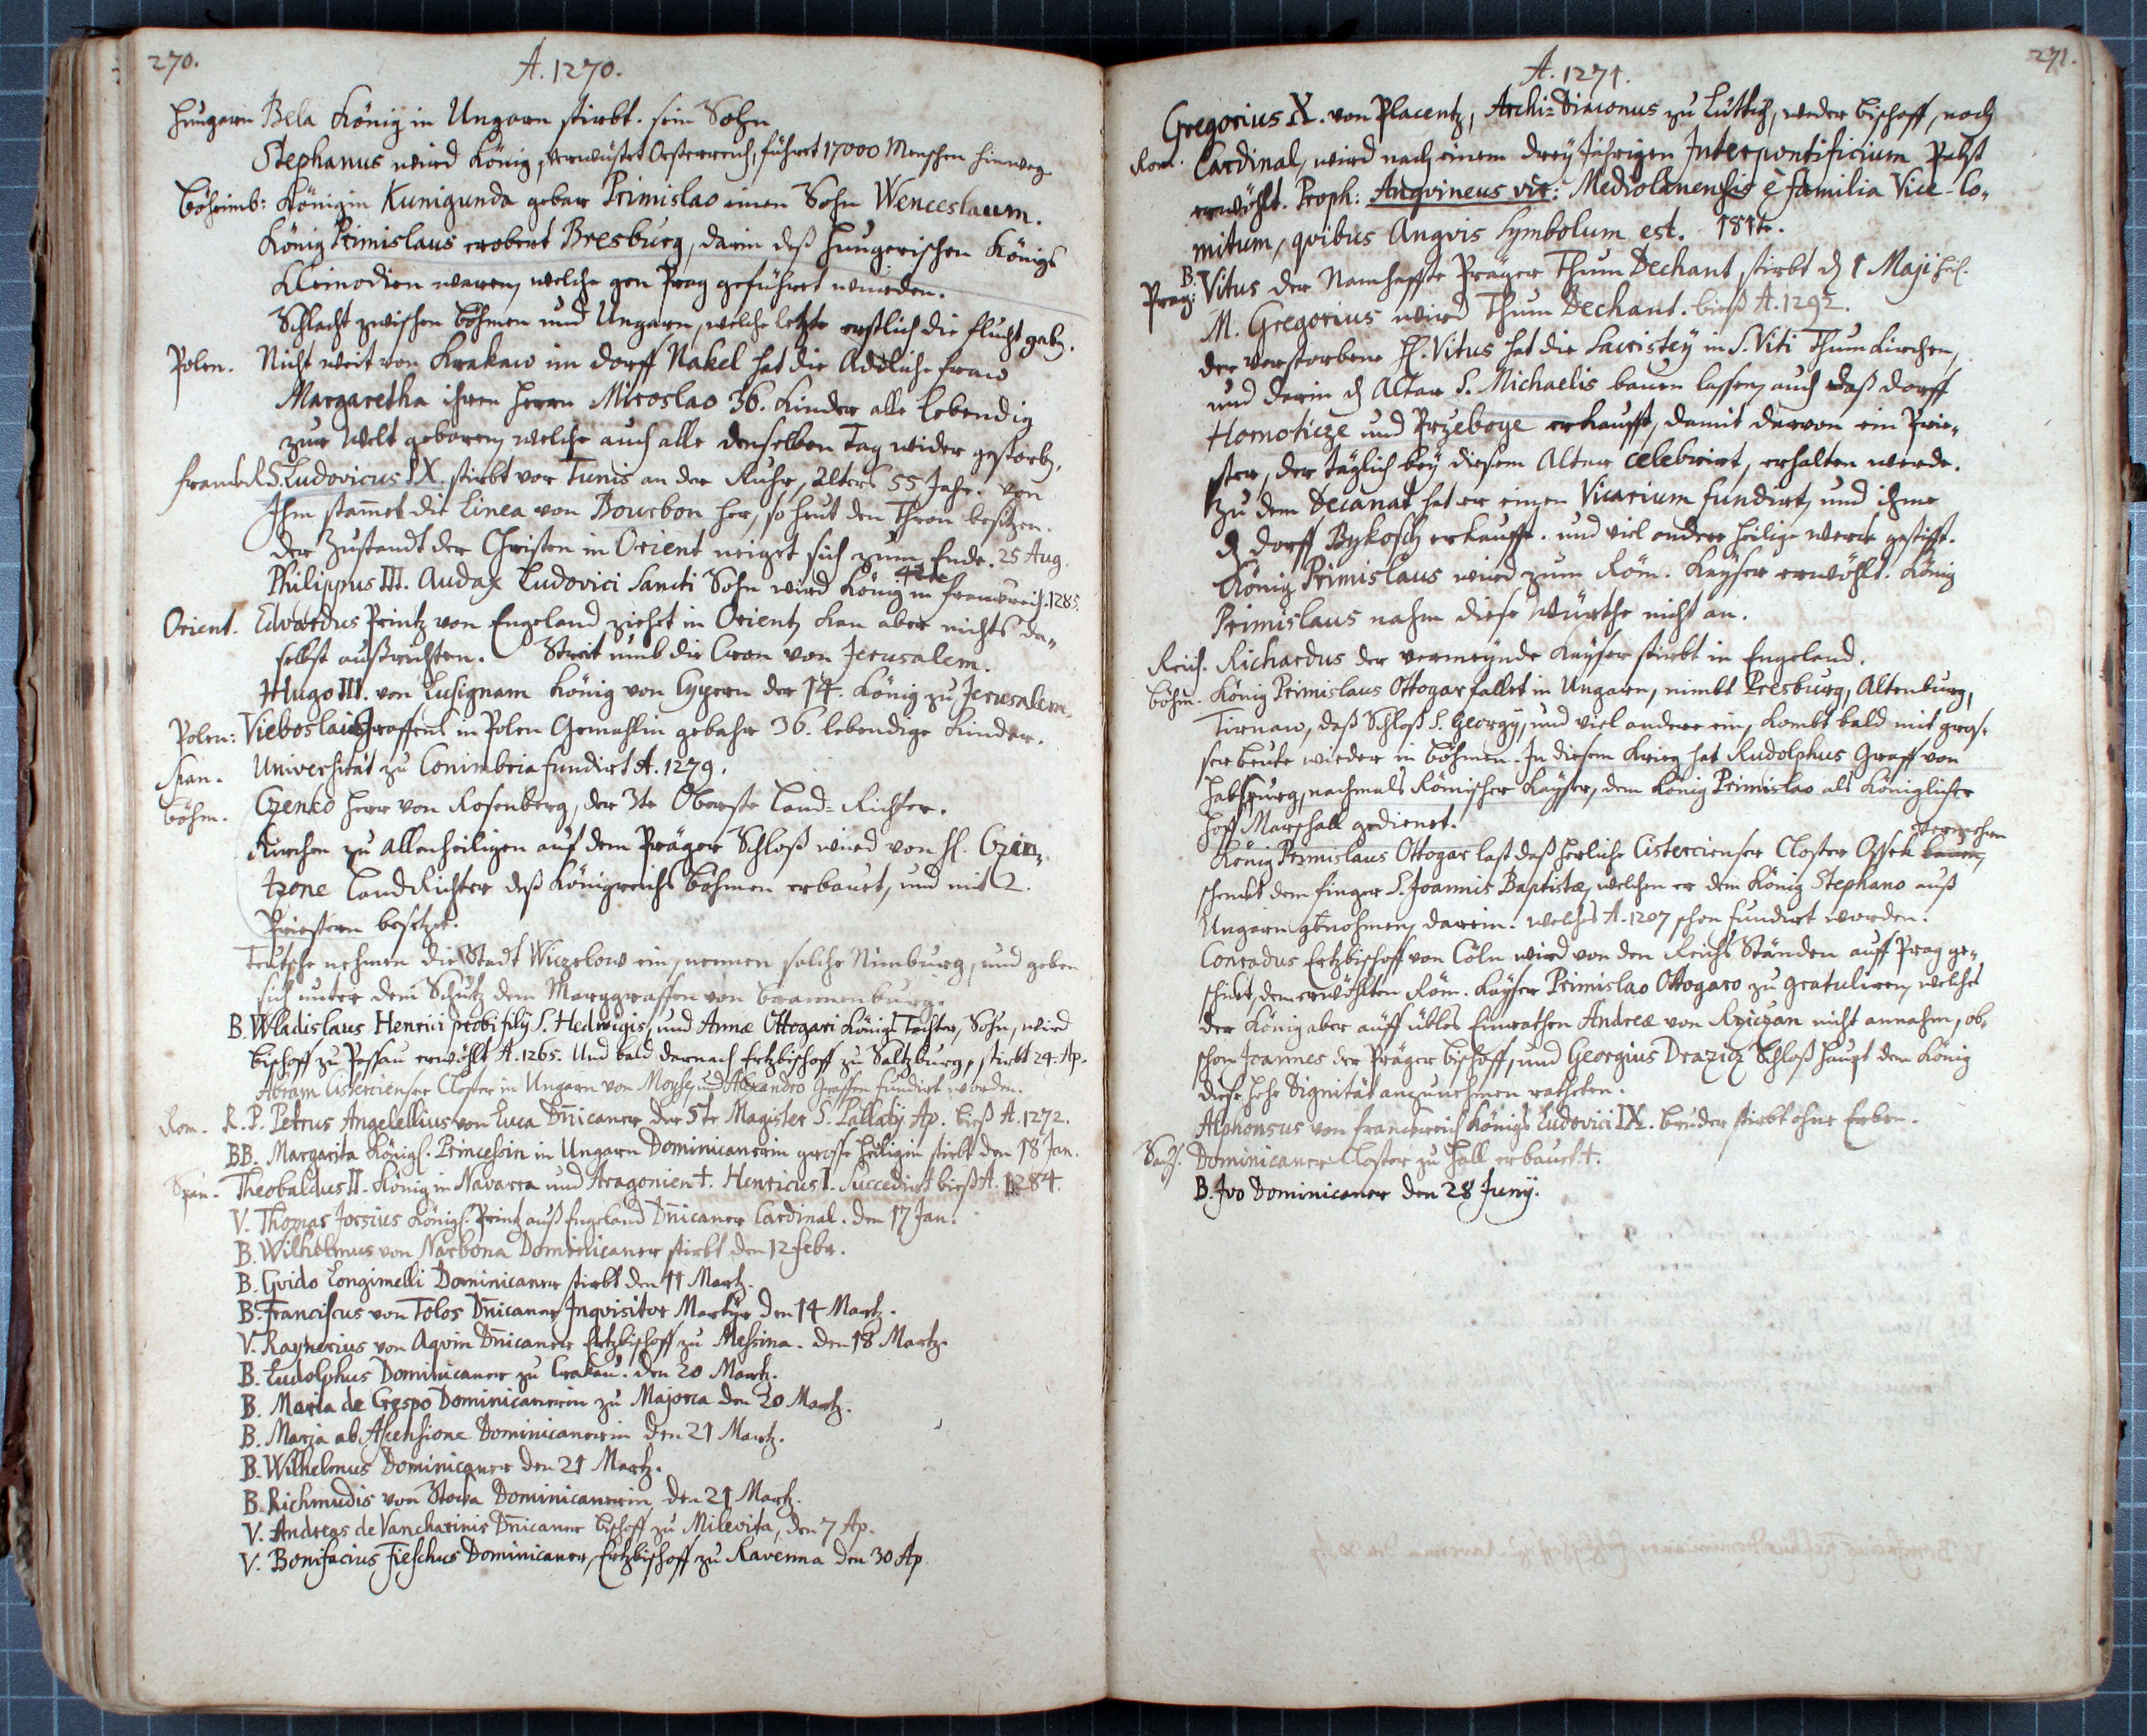 270.
A. 1270.
Hungarn Bela König in Ungarn stirbt. sein Sohn
Stephanus wird König, verwüstet Oesterreich, führet 17000 Menschen hinweg.
Böheimb: Königin Kunigunda gebar Primislao einen Sohn Wenceslaum.
König Primislaus erobert Presburg, darin deß Hungerischen Königs
Kleinodien waren, welche gen Prag geführet wurden.
Schlacht zwischen Böhmen und Ungarn, welche letzte erstlich die flucht gabn.
Polen. Nicht weit von Krakaw im dorff Nakel hat die Adeliche fraw
Margaretha ihren Herrn Miroslao 36. Kinder alle lebendig
zur Welt geboren, welche auch alle denselben Tag wider gestorbn.
S. Ludovicus IX. stirbt vor Tunis an der Ruhr, alters 55 Jahr. von
Ihm stam̅et die Linea von Bourbon her, so heut den Thron besitzen.
der Zustandt der Christen in Orient neiget sich zum Ende. 25 Aug.
42te
Philippus III. Audax Ludovici Sancti Sohn wird König in franckreich. 1285.
Orient. Edvardus Printz von Engeland ziehet in Orient, kan aber nichts da„
selbst außrichten. Streit umb die Cron von Jerusalem.
Hugo III. von Lusignam König von Cypern der 14. König zu Jerusalem.
Polen: Vieboslai Graffens in Polen Gemahlin gebahr 36. lebendige Kinder.
Span. Universität zu Conimbria fundirt A. 1279.
böhm. Czenko Herr von Rosenberg, der 3te Oberste Land-Richter.
Kirchen zu Allenheiligen auf dem Präger Schloß wird von H. Czen„
kone Land Richter deß Königreichs Böhmen erbauet, und mit 2.
Priestern besetzet.
Teutsche nehmen die Stadt Wiczelow ein, nennen solche Nimburg, und geben
sich unter dem Schutz dem Marggraffen von Brannenburg.
B. Wladislaus Henrici probi filÿ S. Hedwigis, und Annæ Ottogari Königs Tochter, Sohn, wird
Bischoff zu Passau erwöhlt A. 1265. Und bald darnach Ertzbischoff zu Saltzburg, stirbt 24. Ap.
Abram Cistercienser Closter in Ungarn von Moyse und Alexandro Graffen fundirt worden.
Rom. R. P. Petrus Angelellius von Luca Dn̅icaner der 5te Magister S. Pallatÿ Ap. bieß A. 1272.
BB. Margarita Königl. Princessin in Ungarn Dominicanerin grosse Heiligin stirbt den 18 Jan.
Span. Theobaldus II. König in Navarra und Aragonien †. Henricus I. Succedirt bieß A. 1284.
V. Thomas Jorsius Königl. Printz auß Engeland Dn̅icaner Cardinal. den 17 Jan.
B. Wilhelmus von Narbona Dominicaner stirbt den 12 febr.
B. Gvido Longimelli Dominicaner stirbt den 11 Martz.
B. Franciscus von Tolos Dn̅icaner Inqvisitor Martÿr den 14 Martz.
V. Raynerius von Aqvin Dn̅icaner Ertzbischoff zu Messina. den 18 Martz.
B. Ludolphus Dominicaner zu Crakau. den 20 Martz.
B. Maria de Crespo Dominicanerin zu Majorca den 20 Martz.
B. Maria ab Ascensione Dominicanerin den 21 Martz.
B. Wilhelmus Dominicaner den 21 Martz.
B. Richmudis von Stowa Dominicanerin, den 21 Martz.
V. Andreas de Vancharinis Dn̅icaner Bischoff zu Milevita, den 7 Ap.
V. Bonifacius Fieschus Dominicaner, Ertzbischoff zu Ravenna den 30 Ap.
271.
A. 1271.
Gregorius X. von Placentz, Archi-Diaconus zu Lüttich, weder Bischoff, noch
Rom. Cardinal, wird nach einem drey Jährigen Interpontificium Pabst
erwöhlt. Proph: Angvineus vir: Mediolanensis è familia Vice-Co„
mitum, qvibus Angvis Symbolum est. 181te.
Prag: B. Vitus der Namhaffte Präger Thum Dechant stirbt d 1 Maji
M. Gregorius wird Thum Dechant. bieß A. 1292.
der verstorbene H. Vitus hat die Sacristey in S. Viti Thum Kirchen,
und darin d Altar S. Michaelis bauen lassen, auch daß dorff
Homoticze und Przeboge erkaufft, damit darvon ein Prie„
ster, der täglich bey diesem Altar celebrirt, erhalten werde.
Zu dem Decanat hat er einen Vicarium fundirt, und ihme
d dorff Bykosch erkaufft. und viel andere heilige werck gestifft.
König Primislaus wird zum Röm. Kayser erwöhlt. König
Primislaus nahm diese Würthe nicht an.
Reich. Richardus der vermeynde Kayser stirbt in Engeland.
böhm. König Primislaus Ottogar fallet in Ungarn, nimbt Presburg, Altenburg,
Tirnaw, daß Schloß S. Georgÿ, und viel andere ein, kombt bald mit gros„
ser beute wieder in Böhmen. In diesem Krieg hat Rudolphus Graff von
Habspurg, nachmals Römischer Kayser, dem König Primislao als Königlicher
Hoff Marschall gedienet.
vermehren
König Primislaus Ottogar last daß herliche Cistercienser Closter Ossek bauen,
schenckt dem finger S. Joannis Baptistæ, welchen er dem König Stephano auß
Ungarn genohmen, darein. welches A. 1207 schon fundirt worden.
Conradus Ertzbischoff von Cöln wird von den Reichs Ständen auff Prag ge„
schickt, dem erwöhlten Röm. Kayser Primislao Ottogaro zu gratuliren, welches
der König aber auff übles Einrathen Andreæ von Rziczan nicht annahm, ob„
schon Joannes der Präger Bischoff, und Georgius Drazicz Schloß Haupt dem König
diese hohe Dignität anzunehmen ratheten.
Alphonsus von franckreich Königs Ludovici IX. bruder stirbt ohne Erben.
Sax. Dominicaner Closter zu Hall erbauet †.
B. Ivo Dominicaner den 28 Junÿ.